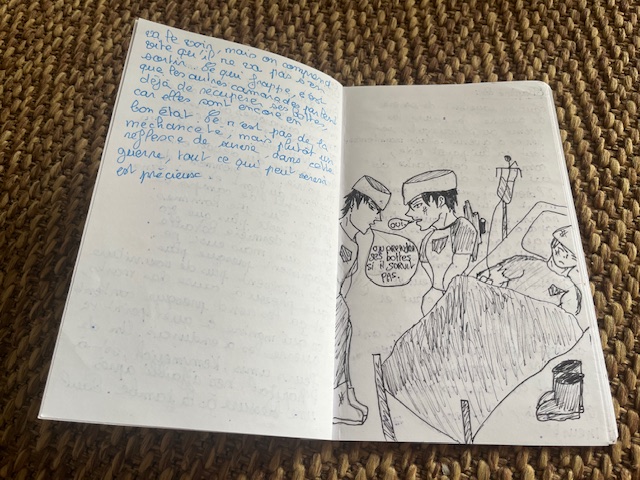 va le voir, mais on comprend
vite qu'il ne va pas s'en
sortir. Ce qui frappe, c'est
que les autres camarades
déjà de recuperer ses bottes,
car elles sont encore en
bon état. Ce n'est pas de la
méchanceté, mais plutôt un
reflexe de survie. dans cette
guerre, tout ce qui peut servir
est précieux.
OUI
On prendra
ses bottes
si il survit
PAS.